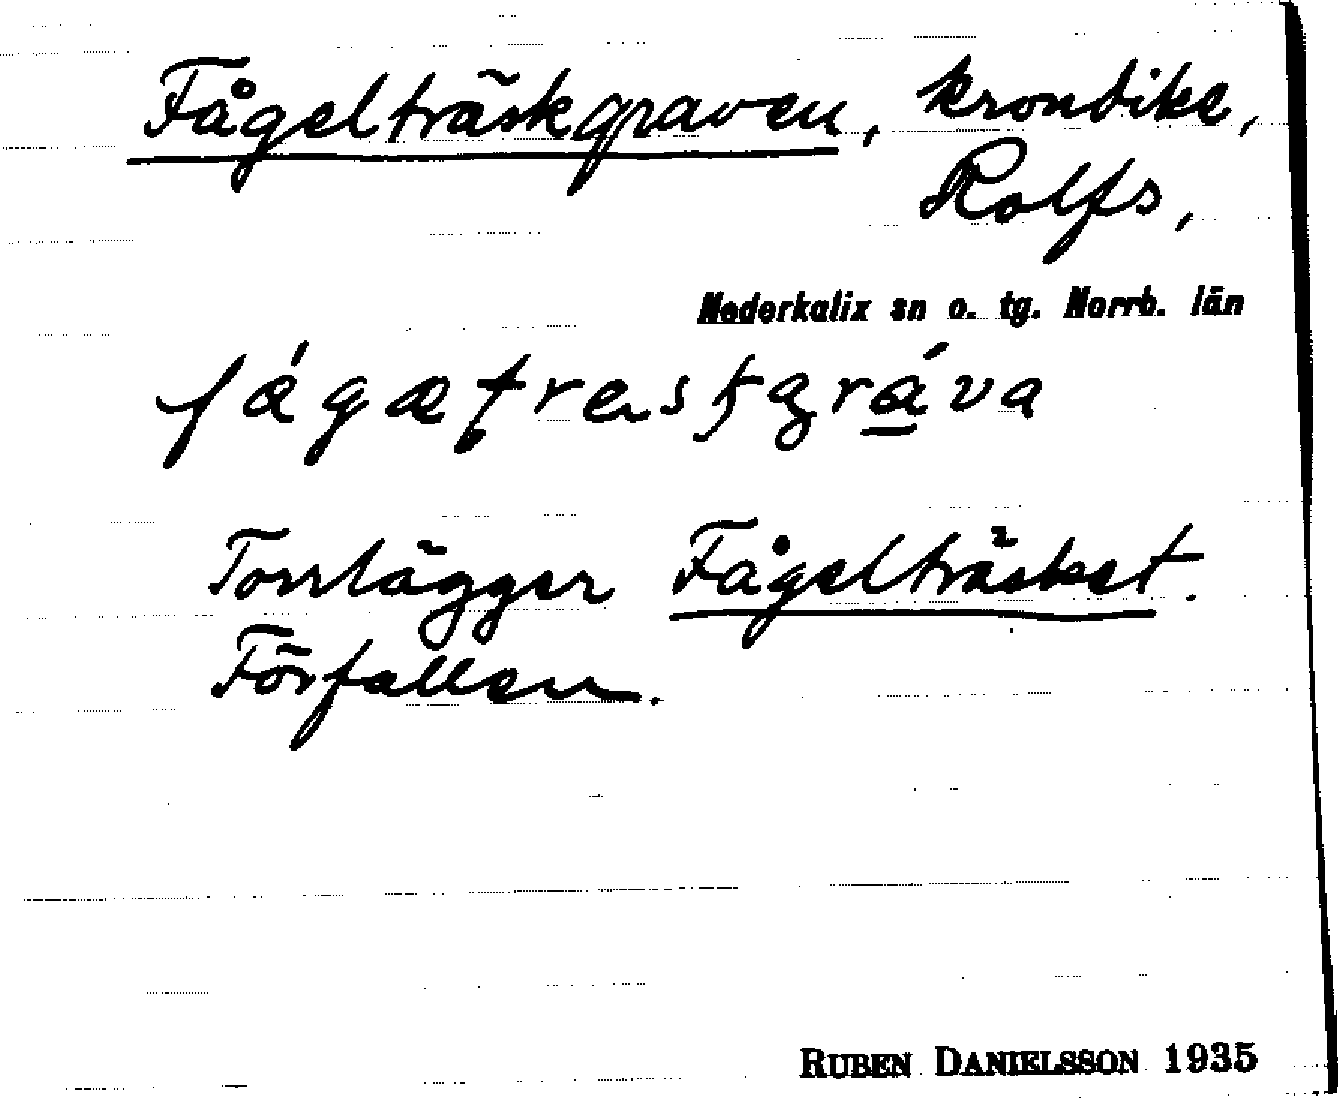 Fågelträskgraven, krondike,
Rolfs,
Nederkalix sn o. tg. Norrb. län
Torrlägger Fågelträsket.
Förfallen.
RUBEN DANIELSSON 1935